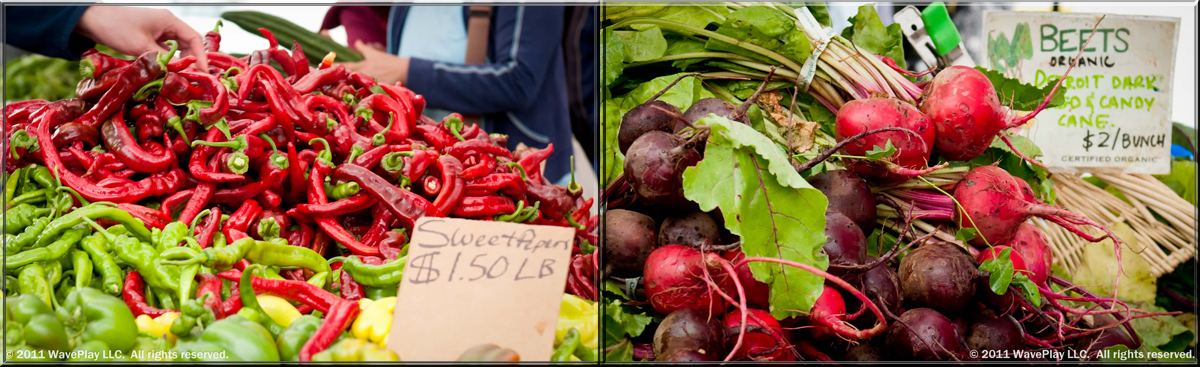 Sweet Pepers
$1.50 LB
© 2011 WavePlay LLC. All rights reserved.
BEETS
ORGANIC
DETROIT DARK
& CANDY
CANE.
$2/BUNCH
CERTIFIED ORGANIC
© 2011 WavePlay LLC. All rights reserved.